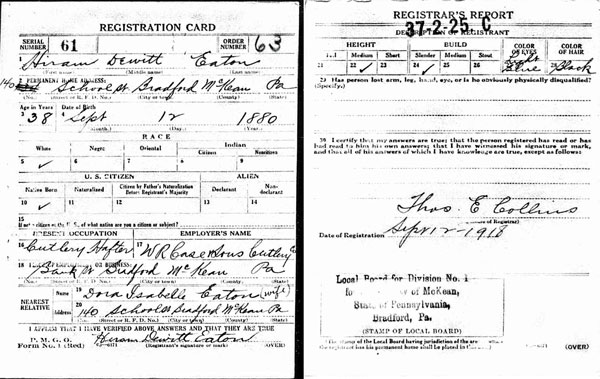 REGISTRATION CARD
SERIAL NUMBER 61 ORDER NUMBER 63
1 Hiram Dewitt Eaton
(First name) (Middle name) (Last name)
2 PERMANENT HOME ADDRESS:
140 School St Bradford McKean Pa
(No.) (Street or R. F. D. No.) (City or town) (County) (State)
Age in Years Date of Birth
3 38 4 Sept 12 1880
(Month.) (Day.) (Year.)
RACE
White Negro Oriental Indian
Citizen Noncitizen
5 ✓ 6 7 8 9
U. S. CITIZEN ALIEN
Native Born Naturalized Citizen by Father's Naturalization Before Registrant's Majority Declarant Non-declarant
10 ✓ 11 12 13 14
15
If not a citizen of the U. S., of what nation are you a citizen or subject?
PRESENT OCCUPATION EMPLOYER'S NAME
16 Cutlery Hafter 17 W R Case & Sons Cutlery Co
18 PLACE OF EMPLOYMENT OR BUSINESS:
Bank St Bradford McKean Pa
(No.) (Street or R. F. D. No.) (City or town) (County) (State)
NEAREST RELATIVE Name 19 Dora Isabelle Eaton (wife)
Address 20 140 School St Bradford McKean Pa
(No.) (Street or R. F. D. No.) (City or town) (County) (State)
I AFFIRM THAT I HAVE VERIFIED ABOVE ANSWERS AND THAT THEY ARE TRUE
P. M. G. O.
Form No. 1 (Red) Hiram Dewitt Eaton
(Registrant's signature or mark) (OVER)
REGISTRAR'S REPORT
37-2-25 C
DESCRIPTION OF REGISTRANT
HEIGHT BUILD COLOR OF EYES COLOR OF HAIR
Tall Medium Short Slender Medium Stout
21 22 ✓ 23 24 ✓ 25 26 27 Blue 28 Black
29 Has person lost arm, leg, hand, eye, or is he obviously physically disqualified?
(Specify.)
30 I certify that my answers are true; that the person registered has read or has
had read to him his own answers; that I have witnessed his signature or mark,
and that all of his answers of which I have knowledge are true, except as follows:
Thos. E Collins
(Signature of Registrar)
Date of Registration Sept 12-1918
Local Board for Division No. 1
of McKean,
State of Pennsylvania,
Bradford, Pa.
(STAMP OF LOCAL BOARD)
(The stamp of the Local Board having jurisdiction of the area
the registrant has his permanent home shall be placed in
(OVER)